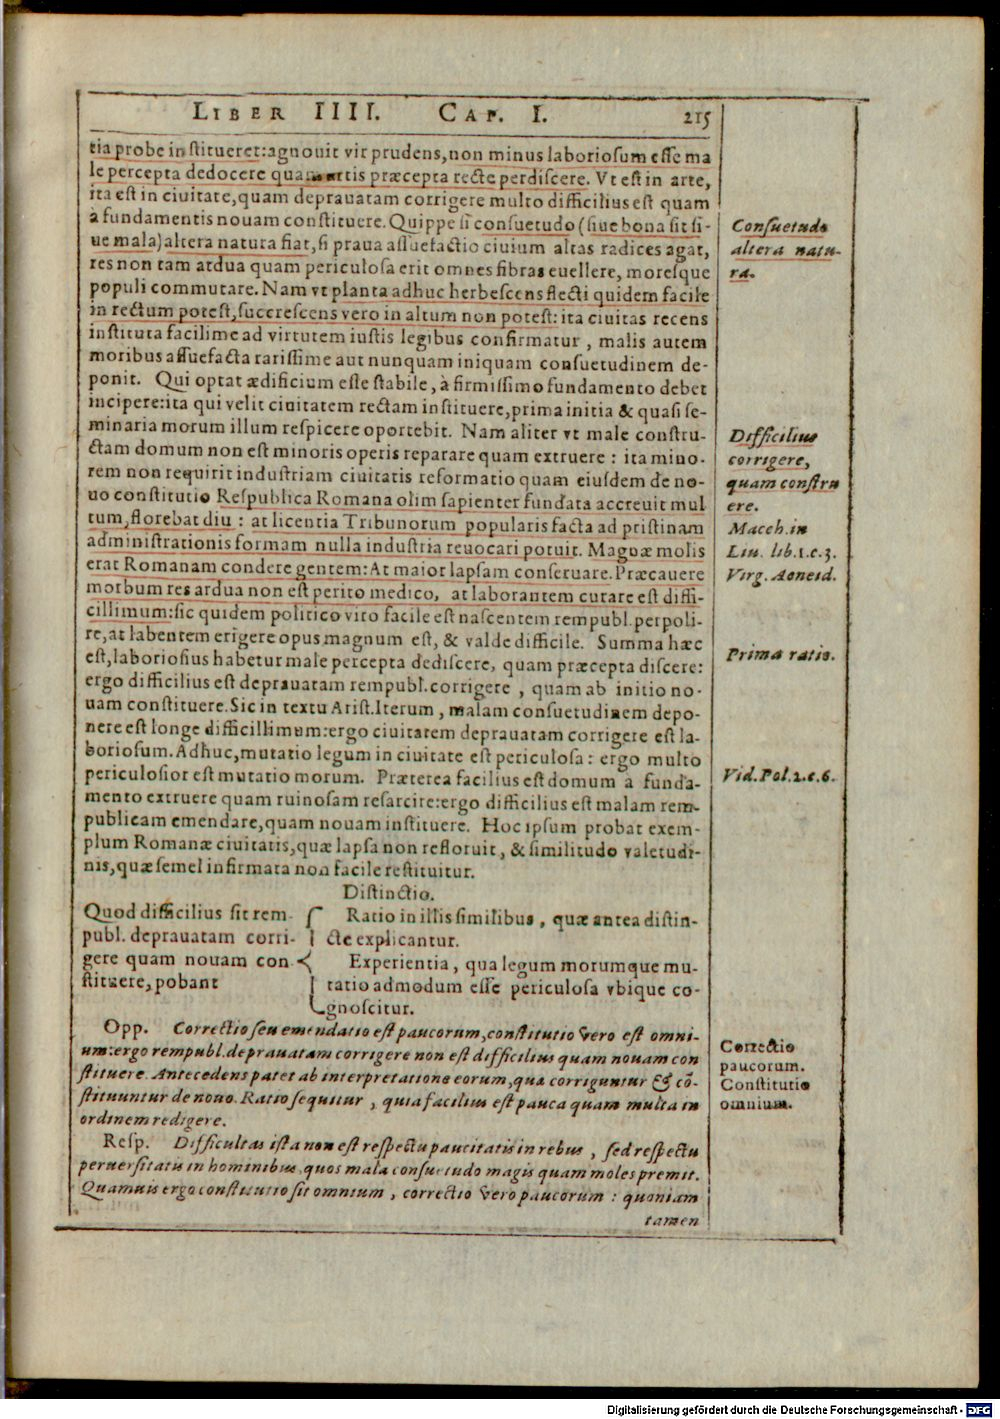 LIBER IIII. CAP. I. 215
tia probe institueret:agnouit vir prudens,non minus laboriosum esse ma
le percepta dedocere quam artis præcepta recte perdiscere. Vt est in arte,
ita est in ciuitate,quam deprauatam corrigere multo difficilius est quam
à fundamentis nouam constituere. Quippe si consuetudo (siue bona sit si-
ue mala) altera natura fiat, si praua assuefactio ciuium altas radices agat,
res non tam ardua quam periculosa erit omnes fibras euellere, moresque
populi commutare. Nam vt planta adhuc herbescens flecti quidem facile
in rectum potest, succrescens vero in altum non potest: ita ciuitas recens
instituta facilime ad virtutem iustis legibus confirmatur, malis autem
moribus assuefacta rarissime aut nunquam iniquam consuetudinem de-
ponit. Qui optat ædificium esse stabile, à firmissimo fundamento debet
incipere:ita qui velit ciuitatem rectam instituere,prima initia & quasi se-
minaria morum illum respicere oportebit. Nam aliter vt male constru-
ctam domum non est minoris operis reparare quam extruere : ita mino-
rem non requirit industriam ciuitatis reformatio quam eiusdem de no-
uo constitutio Respublica Romana olim sapienter fundata accreuit mul
tum, florebat diu : at licentia Tribunorum popularis facta ad pristinam
administrationis formam nulla industria reuocari potuit. Magnæ molis
erat Romanam condere gentem: At maior lapsam conseruare. Præcauere
morbum res ardua non est perito medico, at laborantem curare est diffi-
cillimum: sic quidem politico viro facile est nascentem rempubl. perpoli-
re,at labentem erigere opus magnum est, & valde difficile. Summa hæc
est, laboriosius habetur male percepta dediscere, quam præcepta discere:
ergo difficilius est deprauatam rempubl. corrigere, quam ab initio no-
uam constituere. Sic in textu Arist. Iterum, malam consuetudinem depo-
nere est longe difficillimum:ergo ciuitatem deprauatam corrigere est la-
boriosum. Adhuc, mutatio legum in ciuitate est periculosa: ergo multo
periculosior est mutatio morum. Præterea facilius est domum a funda-
mento extruere quam ruinosam resarcire:ergo difficilius est malam rem-
publicam emendare, quam nouam instituere. Hoc ipsum probat exem-
plum Romanæ ciuitatis, quæ lapsa non refloruit, & similitudo valetudi-
nis, quæ semel infirmata non facile restituitur.
Distinctio.
Quod difficilius sit rem-
publ. deprauatam corri-
gere quam nouam con-
stituere, pobant
Ratio in illis similibus, quæ antea distin-
cte explicantur.
Experientia, qua legum morumque mu-
tatio admodum esse periculosa vbique co-
gnoscitur.
Opp. Correctio seu emendatio est paucorum, constitutio vero est omni-
um:ergo rempubl. deprauatam corrigere non est difficilius quam nouam con
stituere. Antecedens patet ab interpretatione eorum, qua corriguntur & cõ-
stituuntur de nouo. Ratio sequitur, quia facilius est pauca quam multa in
ordinem redigere.
Resp. Difficultas ista non est respectu paucitatis in rebus, sed respectu
peruersitatis in hominibus, quos mala consuetudo magis quam moles premit.
Quamuis ergo constitutio sit omnium, correctio vero paucorum : quoniam
tamen
Consuetudo
altera natu-
ra.
Difficilius
corrigere,
quam constru
ere.
Macch. in
Liu. lib. 1.c.3.
Virg. Aeneid.
Prima ratio.
Vid. Pol. 2.c.6.
Correctio
paucorum.
Constitutio
omnium.
Digitalisierung gefördert durch die Deutsche Forschungsgemeinschaft - DFG